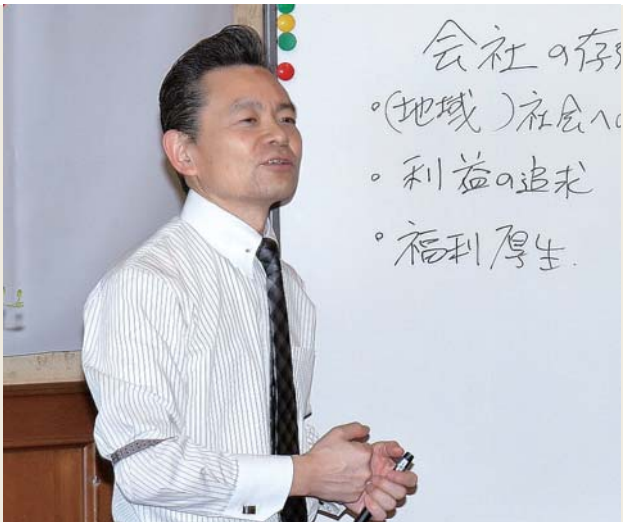 会社の存
・(地域)社会へ
・利益の追求
・福利厚生.